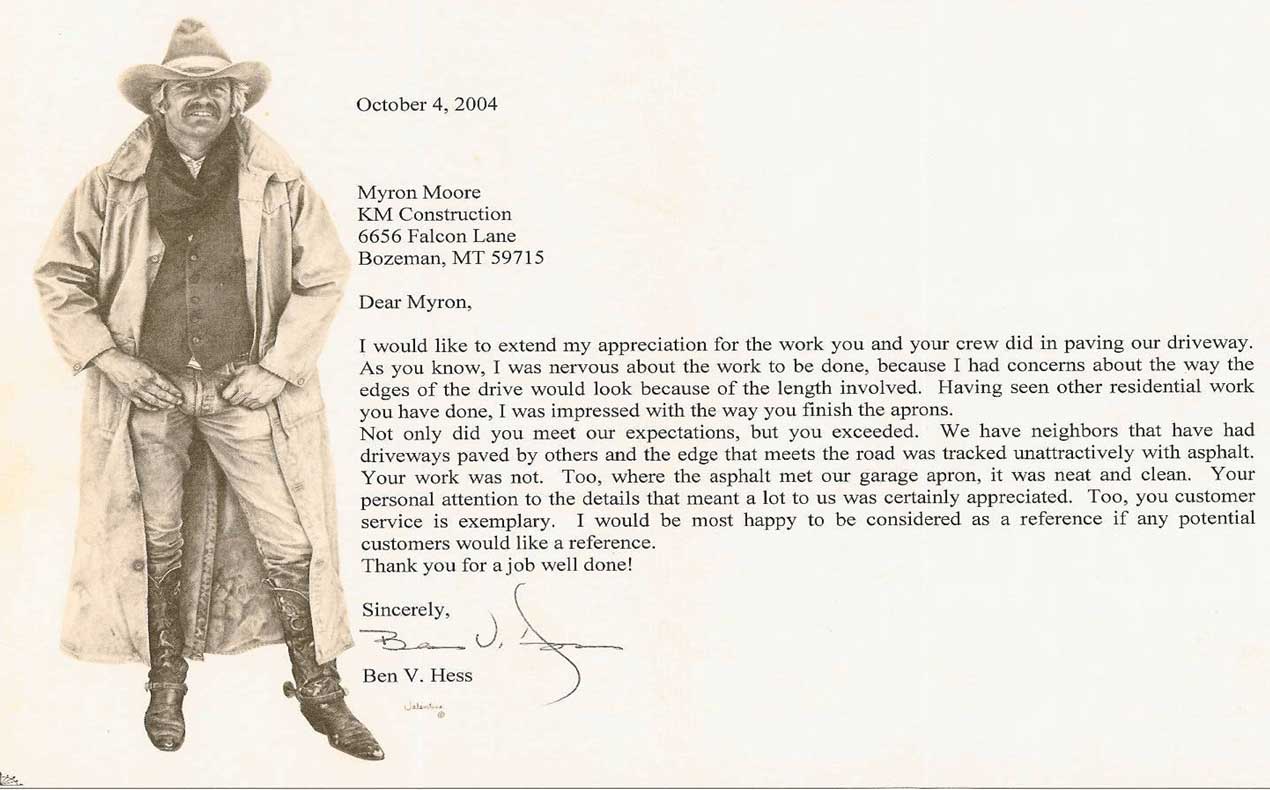 October 4, 2004
Myron Moore
KM Construction
6656 Falcon Lane
Bozeman, MT 59715
Dear Myron,
I would like to extend my appreciation for the work you and your crew did in paving our driveway.
As you know, I was nervous about the work to be done, because I had concerns about the way the
edges of the drive would look because of the length involved. Having seen other residential work
you have done, I was impressed with the way you finish the aprons.
Not only did you meet our expectations, but you exceeded. We have neighbors that have had
driveways paved by others and the edge that meets the road was tracked unattractively with asphalt.
Your work was not. Too, where the asphalt met our garage apron, it was neat and clean. Your
personal attention to the details that meant a lot to us was certainly appreciated. Too, you customer
service is exemplary. I would be most happy to be considered as a reference if any potential
customers would like a reference.
Thank you for a job well done!
Sincerely,
Ben V.
Ben V. Hess
©